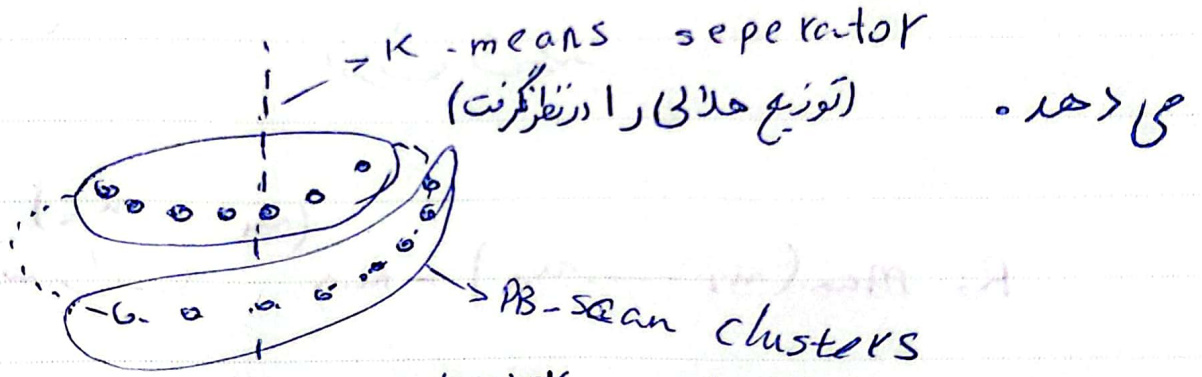 K-means seperator
می دهد. (توزیع هلالی را درنظر گرفت)
DB-scan clusters